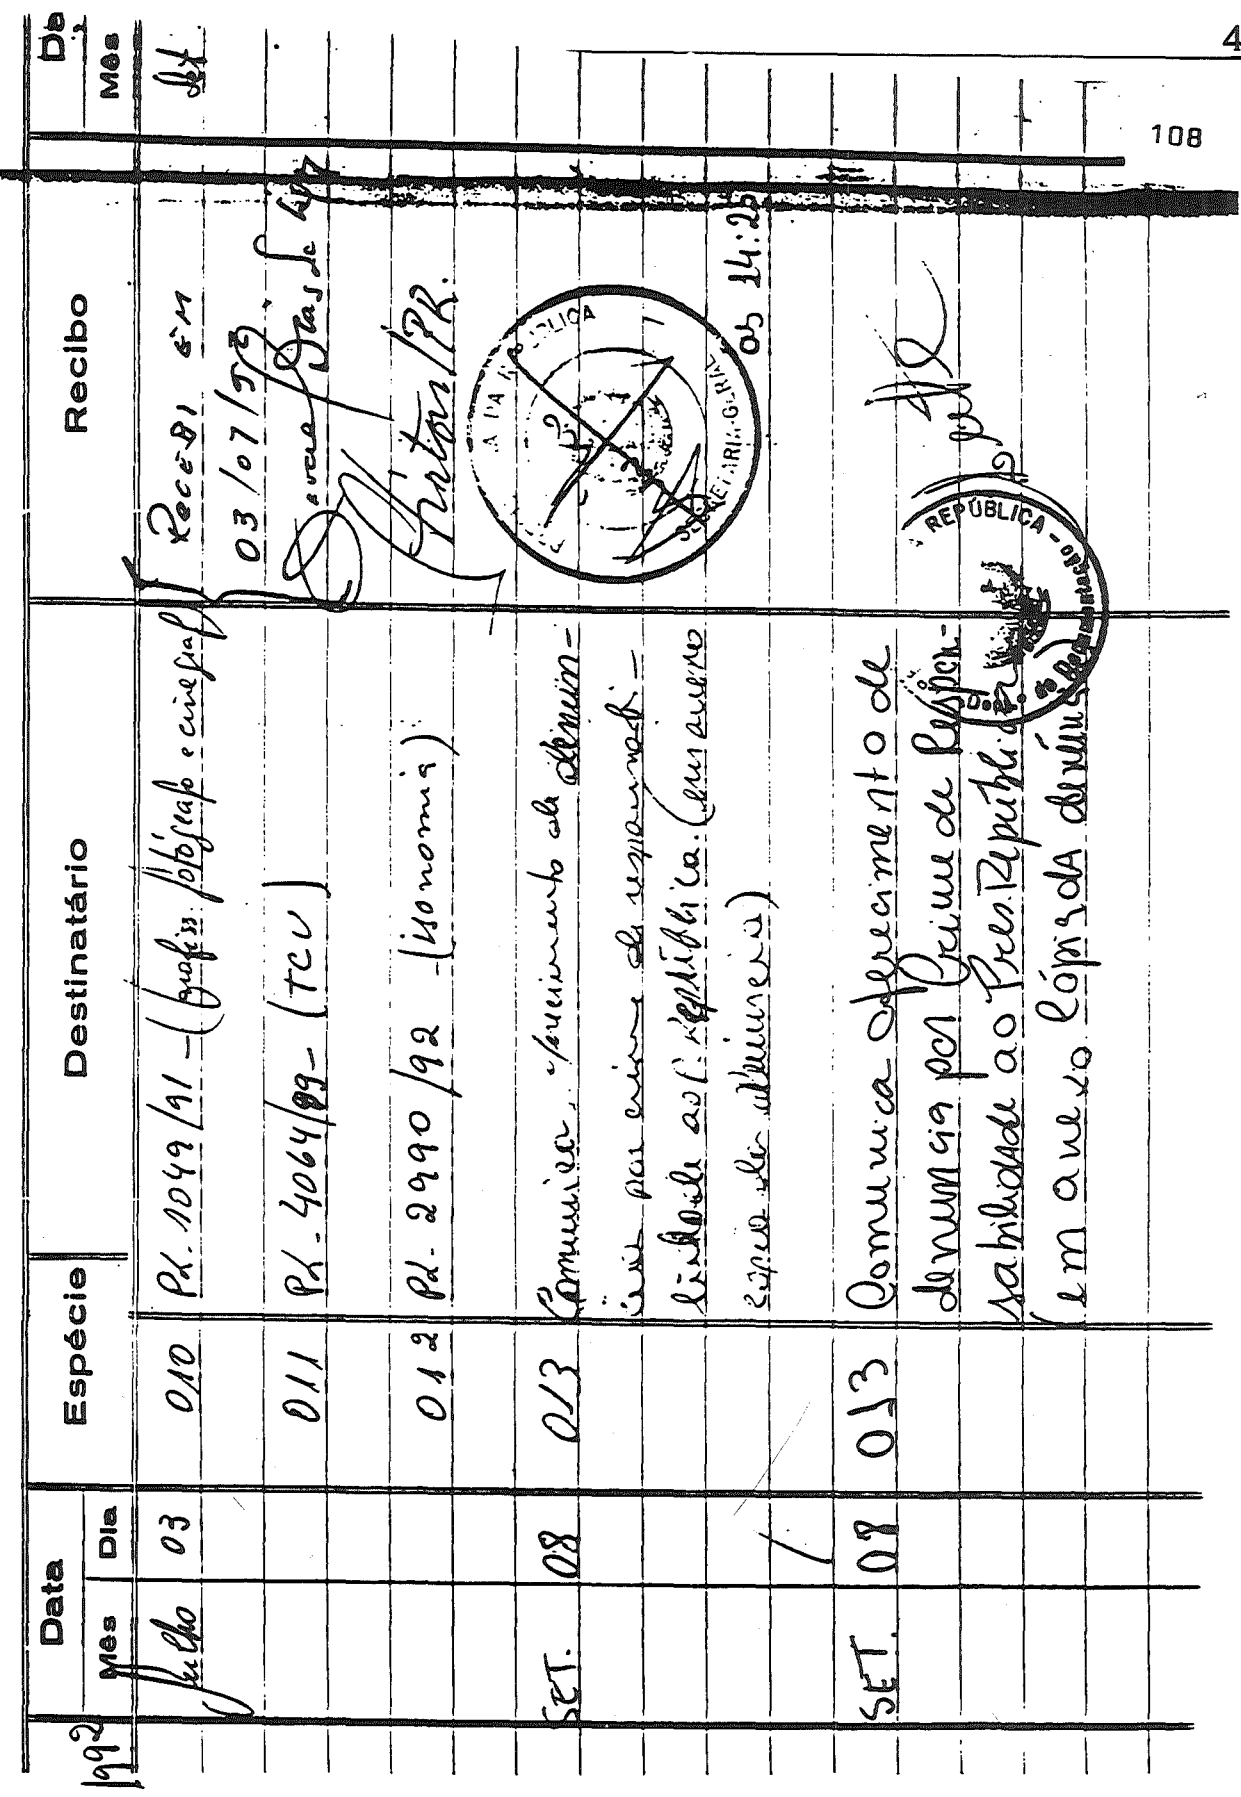 4
108
Data
Espécie
Destinatário
Recibo
Da
1992
Mês
Dia
Mês
Julho 03 010 PL. 1049/91 - (profiss. fotógrafo e cinegraf) Recebi em
Set
03/07/92
011 PL. 4064/89 - (TCU)
012 PL. 2990/92 - (isonomia)
/PR.
SET. 08 013 Comunica oferecimento de denún-
cia por crime de responsabi-
lidade ao P. República. (em anexo
cópia da denúncia)
SECRETARIA-GERAL
às 14:25
SET. 08 013 Comunica oferecimento de
denuncia por Crime de Respon-
sabilidade ao Pres. República
(em anexo Cópia da denúncia
REPÚBLICA -
Dept. de Documentação